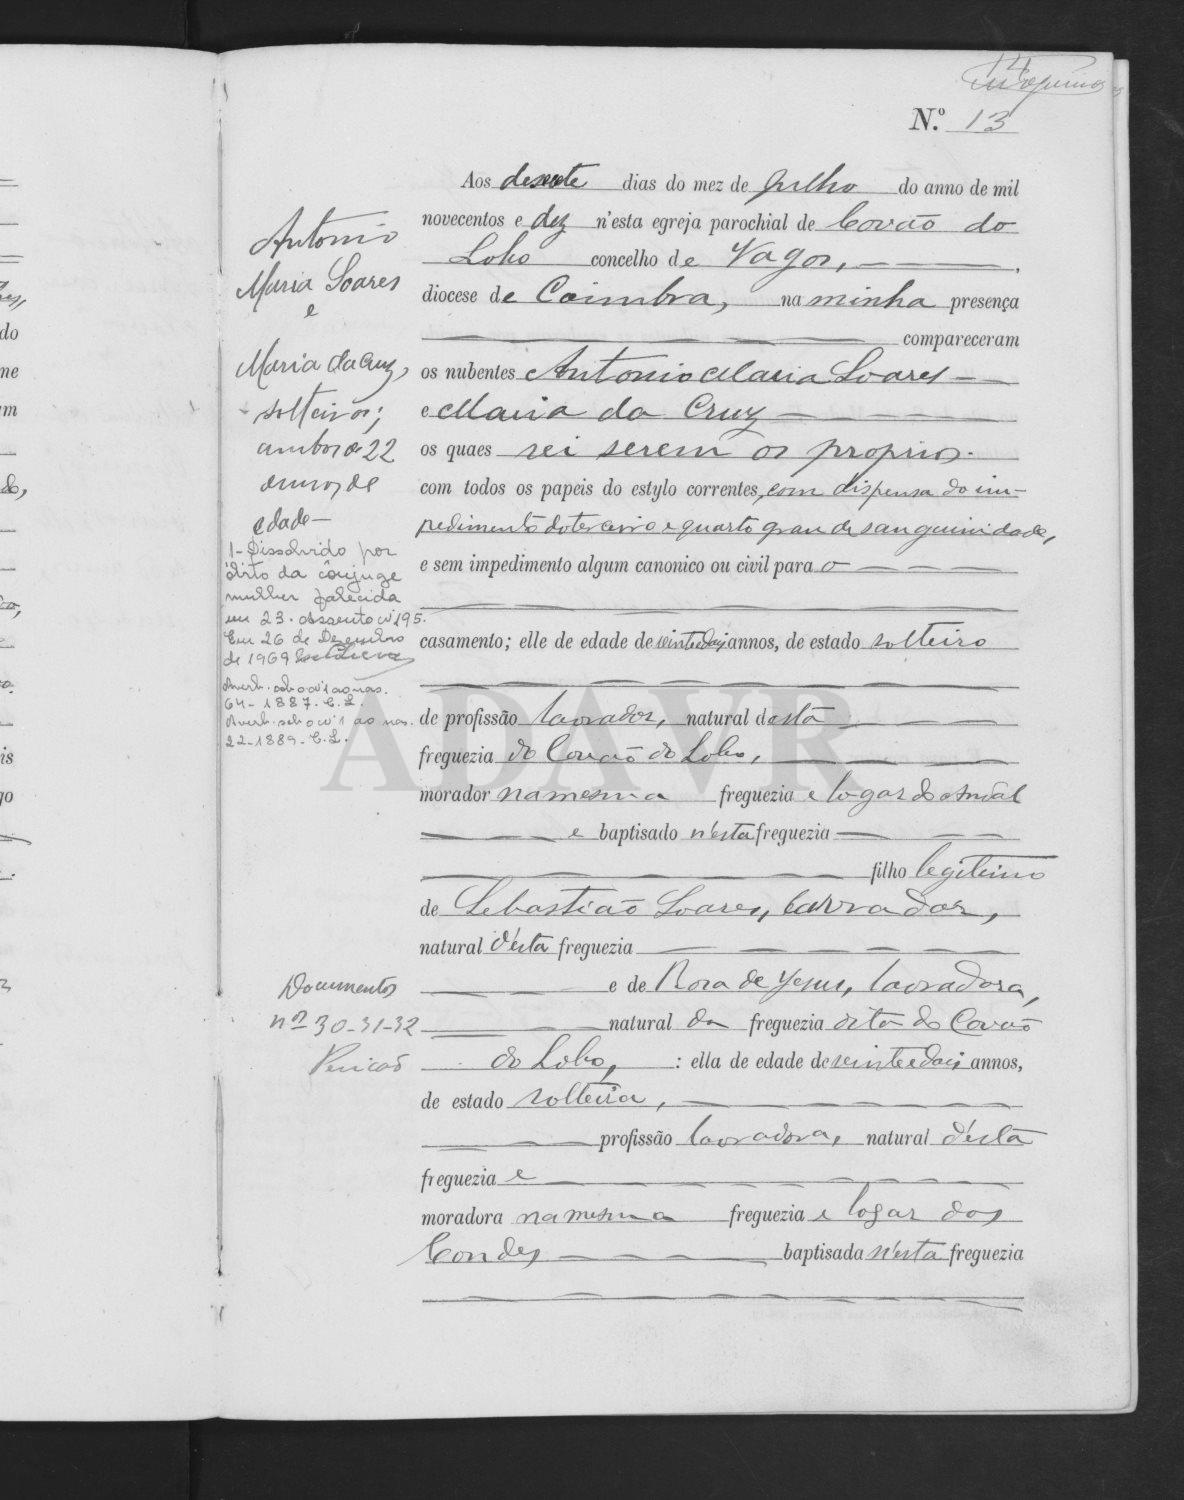 14
N.º 13
Antonio
Maria Soares
e
Maria da Cruz,
solteiros;
ambos de 22
annos de
edade—
1- Dissolvido por
óbito da cônjuge
mulher falecida
em 23. Assento nº 195.
Em 26 de Dezembro
de 1969
Averb. sob o nº 1 ao nas.
64-1887. C. L.
Averb. sob o nº 1 ao nas.
22-1889. C. L.
Documentos
nos 30-31-32
Aos dias do mez de Julho do anno de mil
novecentos e dez n'esta egreja parochial de Covão do
Lobo concelho de Vagos,
diocese de Coimbra, na minha presença
compareceram
os nubentes Antonio Maria Soares
e Maria da Cruz
os quaes sei serem os proprios.
com todos os papeis do estylo correntes, com dispensa do im-
pedimento do terceiro e quarto grau de sanguinidade,
e sem impedimento algum canonico ou civil para o
casamento; elle de edade de vinte e dois annos, de estado solteiro
de profissão lavrador, natural desta
freguezia do Covão do Lobo,
morador na mesma freguezia e logar do
e baptisado n'esta freguezia
filho legitimo
de Sebastião Soares, lavrador,
natural d'esta freguezia
e de Rosa de Jesus, lavradora,
natural da freguezia dita do Covão
do Lobo, : ella de edade de vinte e dois annos,
de estado solteira,
profissão lavradora, natural d'esta
freguezia e
moradora na mesma freguezia e logar dos
Condes baptisada n'esta freguezia
ADAVR